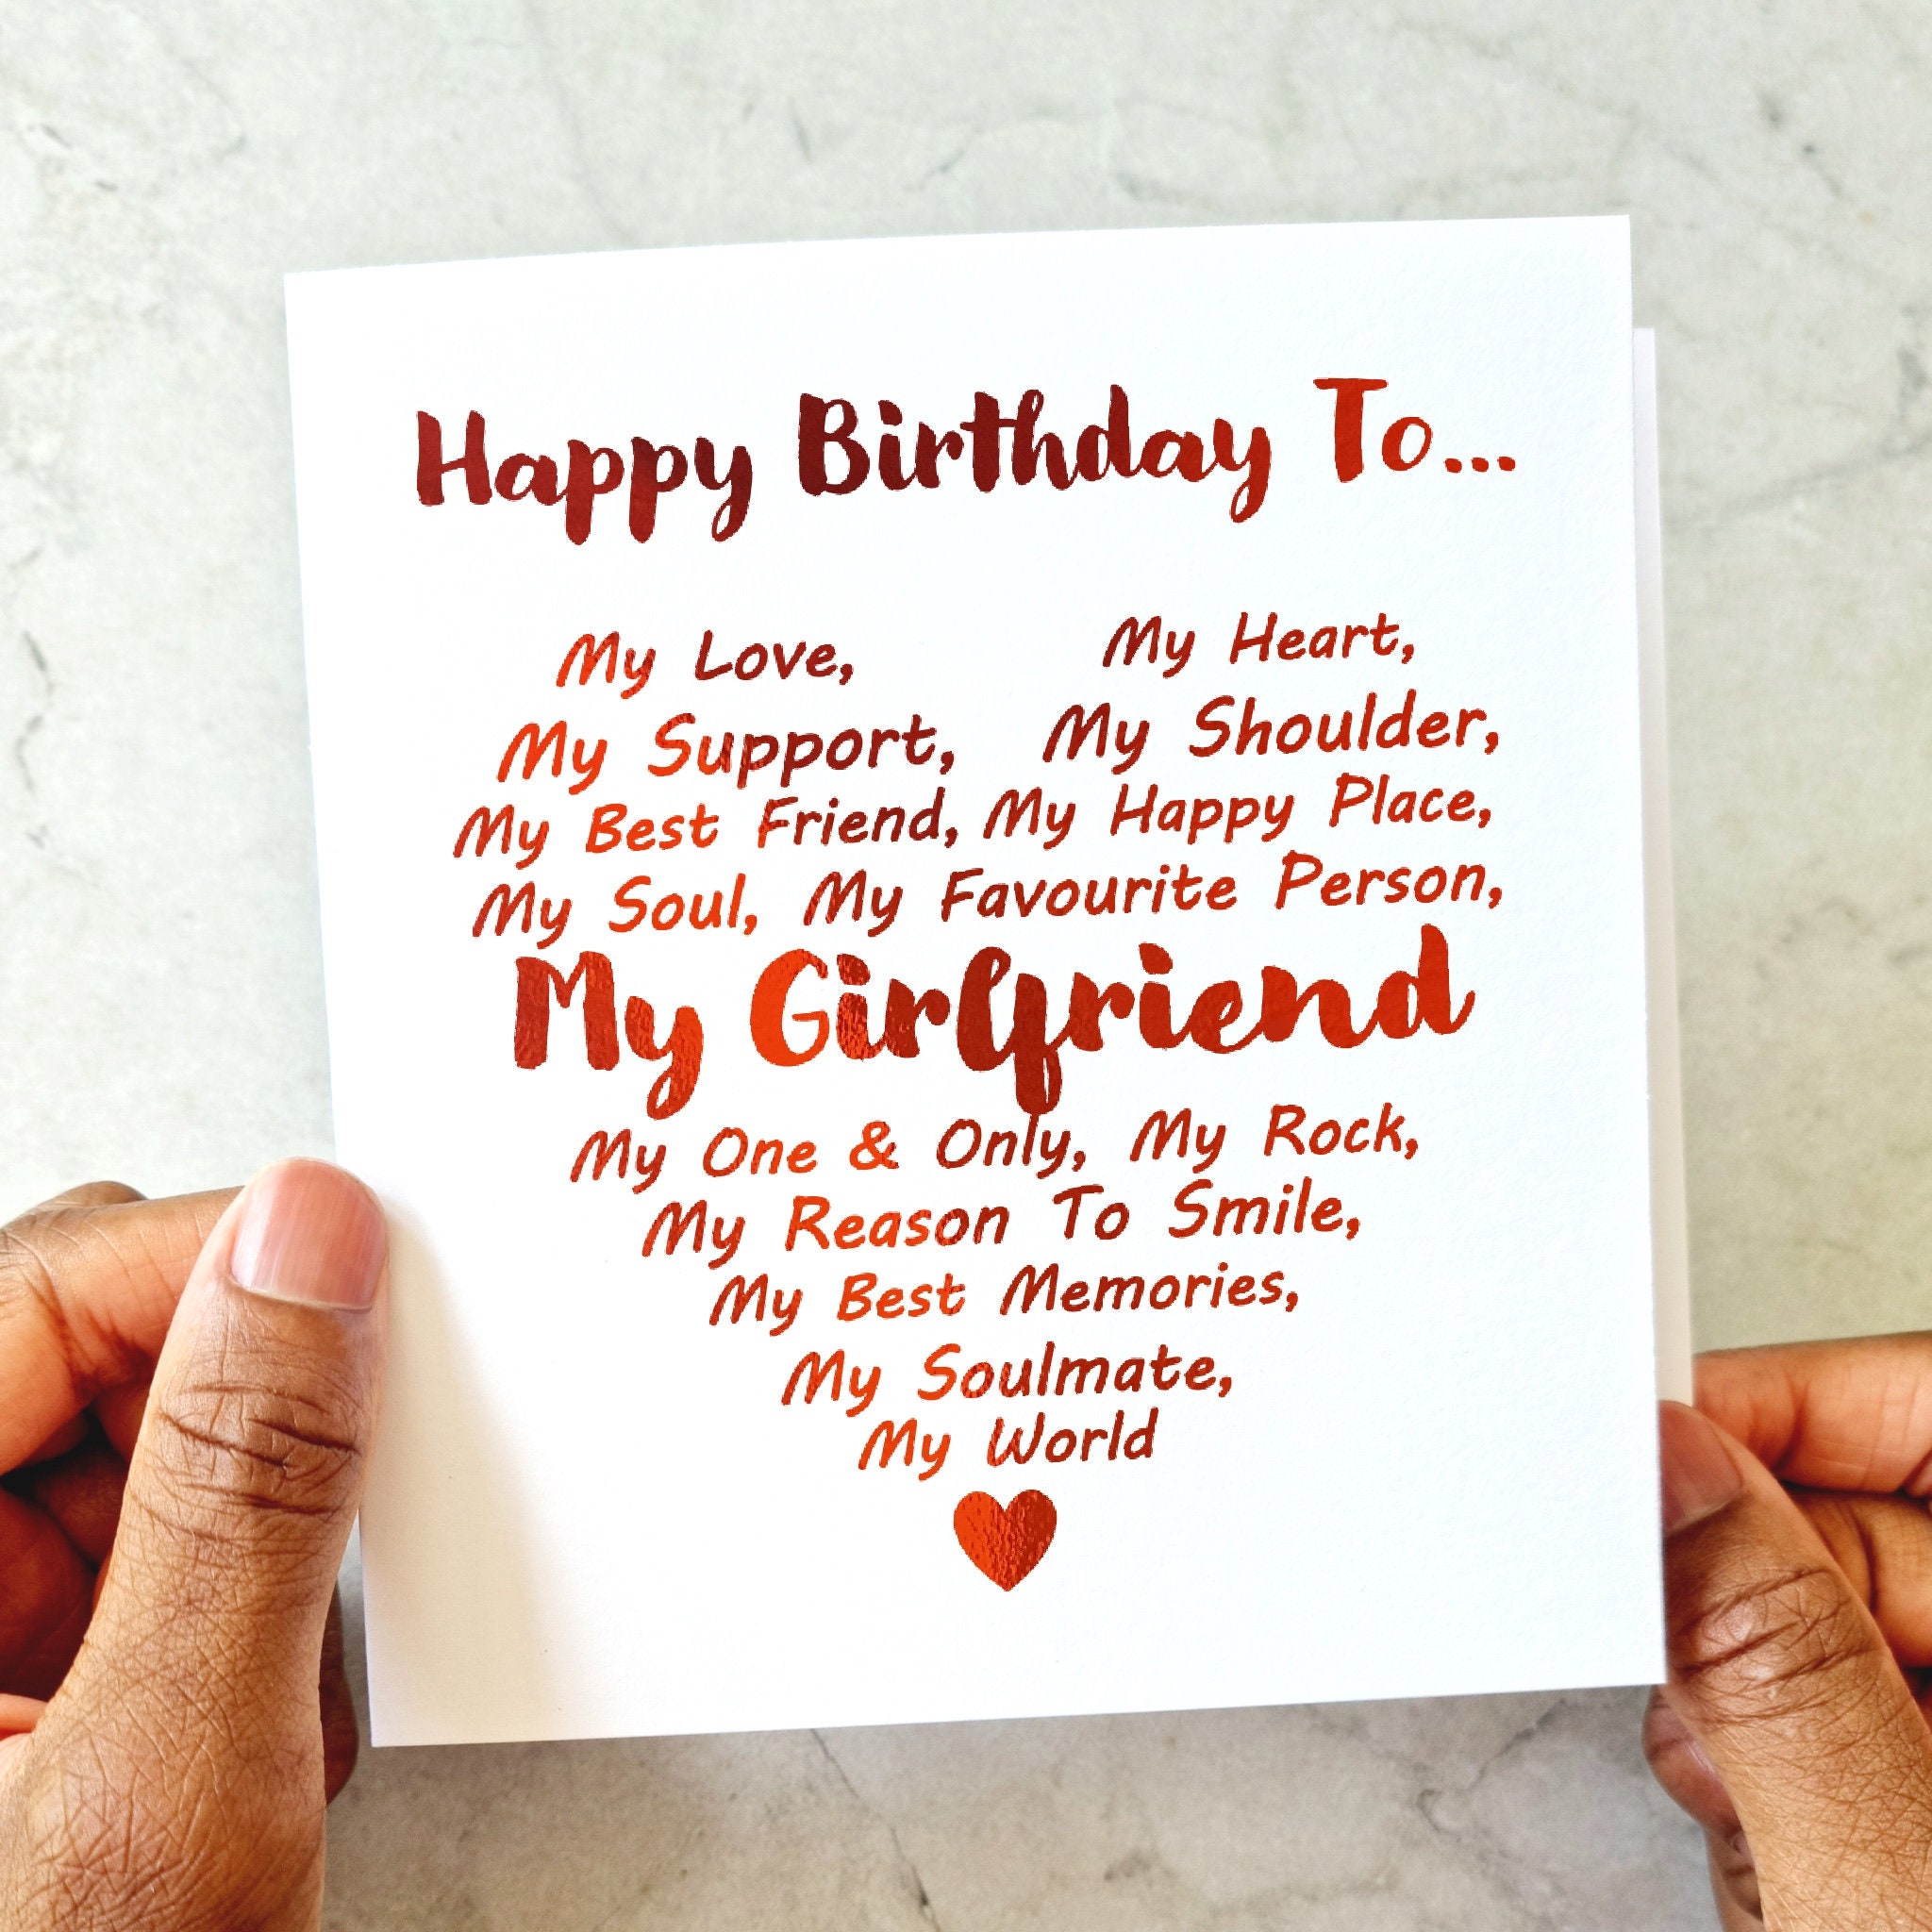 Happy Birthday To...
My Love, My Heart,
My Support, My Shoulder,
My Best Friend, My Happy Place,
My Soul, My Favourite Person,
My Girlfriend
My One & Only, My Rock,
My Reason To Smile,
My Best Memories,
My Soulmate,
My World